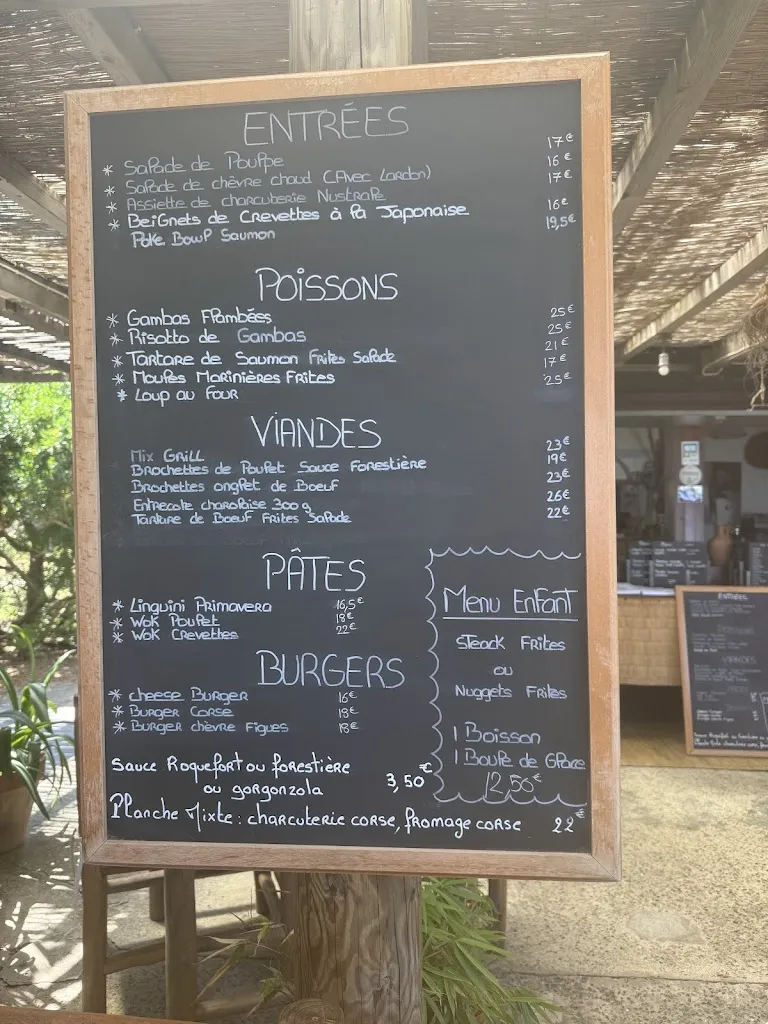 ENTRÉES
* Salade de Poulpe 17€
* Salade de chèvre chaud (Avec Lardon) 16€
* Assiette de charcuterie Nustrale 17€
* Beignets de Crevettes à la Japonaise 16€
Poke Bowl Saumon 19,5€
POISSONS
* Gambas Flambées 25€
* Risotto de Gambas 25€
* Tartare de Saumon Frites Salade 21€
* Moules Marinières Frites 17€
* Loup au Four 25€
VIANDES
Mix Grill 23€
Brochettes de Poulet Sauce Forestière 19€
Brochettes onglet de Boeuf 23€
Entrecote charolaise 300g 26€
Tartare de Boeuf Frites Salade 22€
PÂTES
* Linguini Primavera 16,5€
* Wok Poulet 18€
* Wok Crevettes 22€
BURGERS
* cheese Burger 16€
* Burger Corse 18€
* Burger chèvre Figues 18€
Sauce Roquefort ou forestière
ou gorgonzola 3,50€
Planche Mixte : charcuterie corse, fromage corse 22€
Menu Enfant
Steack Frites
ou
Nuggets Frites
1 Boisson
1 Boule de Glace
12,50€
ENTRÉES
POISSONS
VIANDES